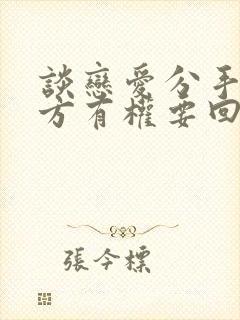 談戀愛分手
方有權要回
張今標